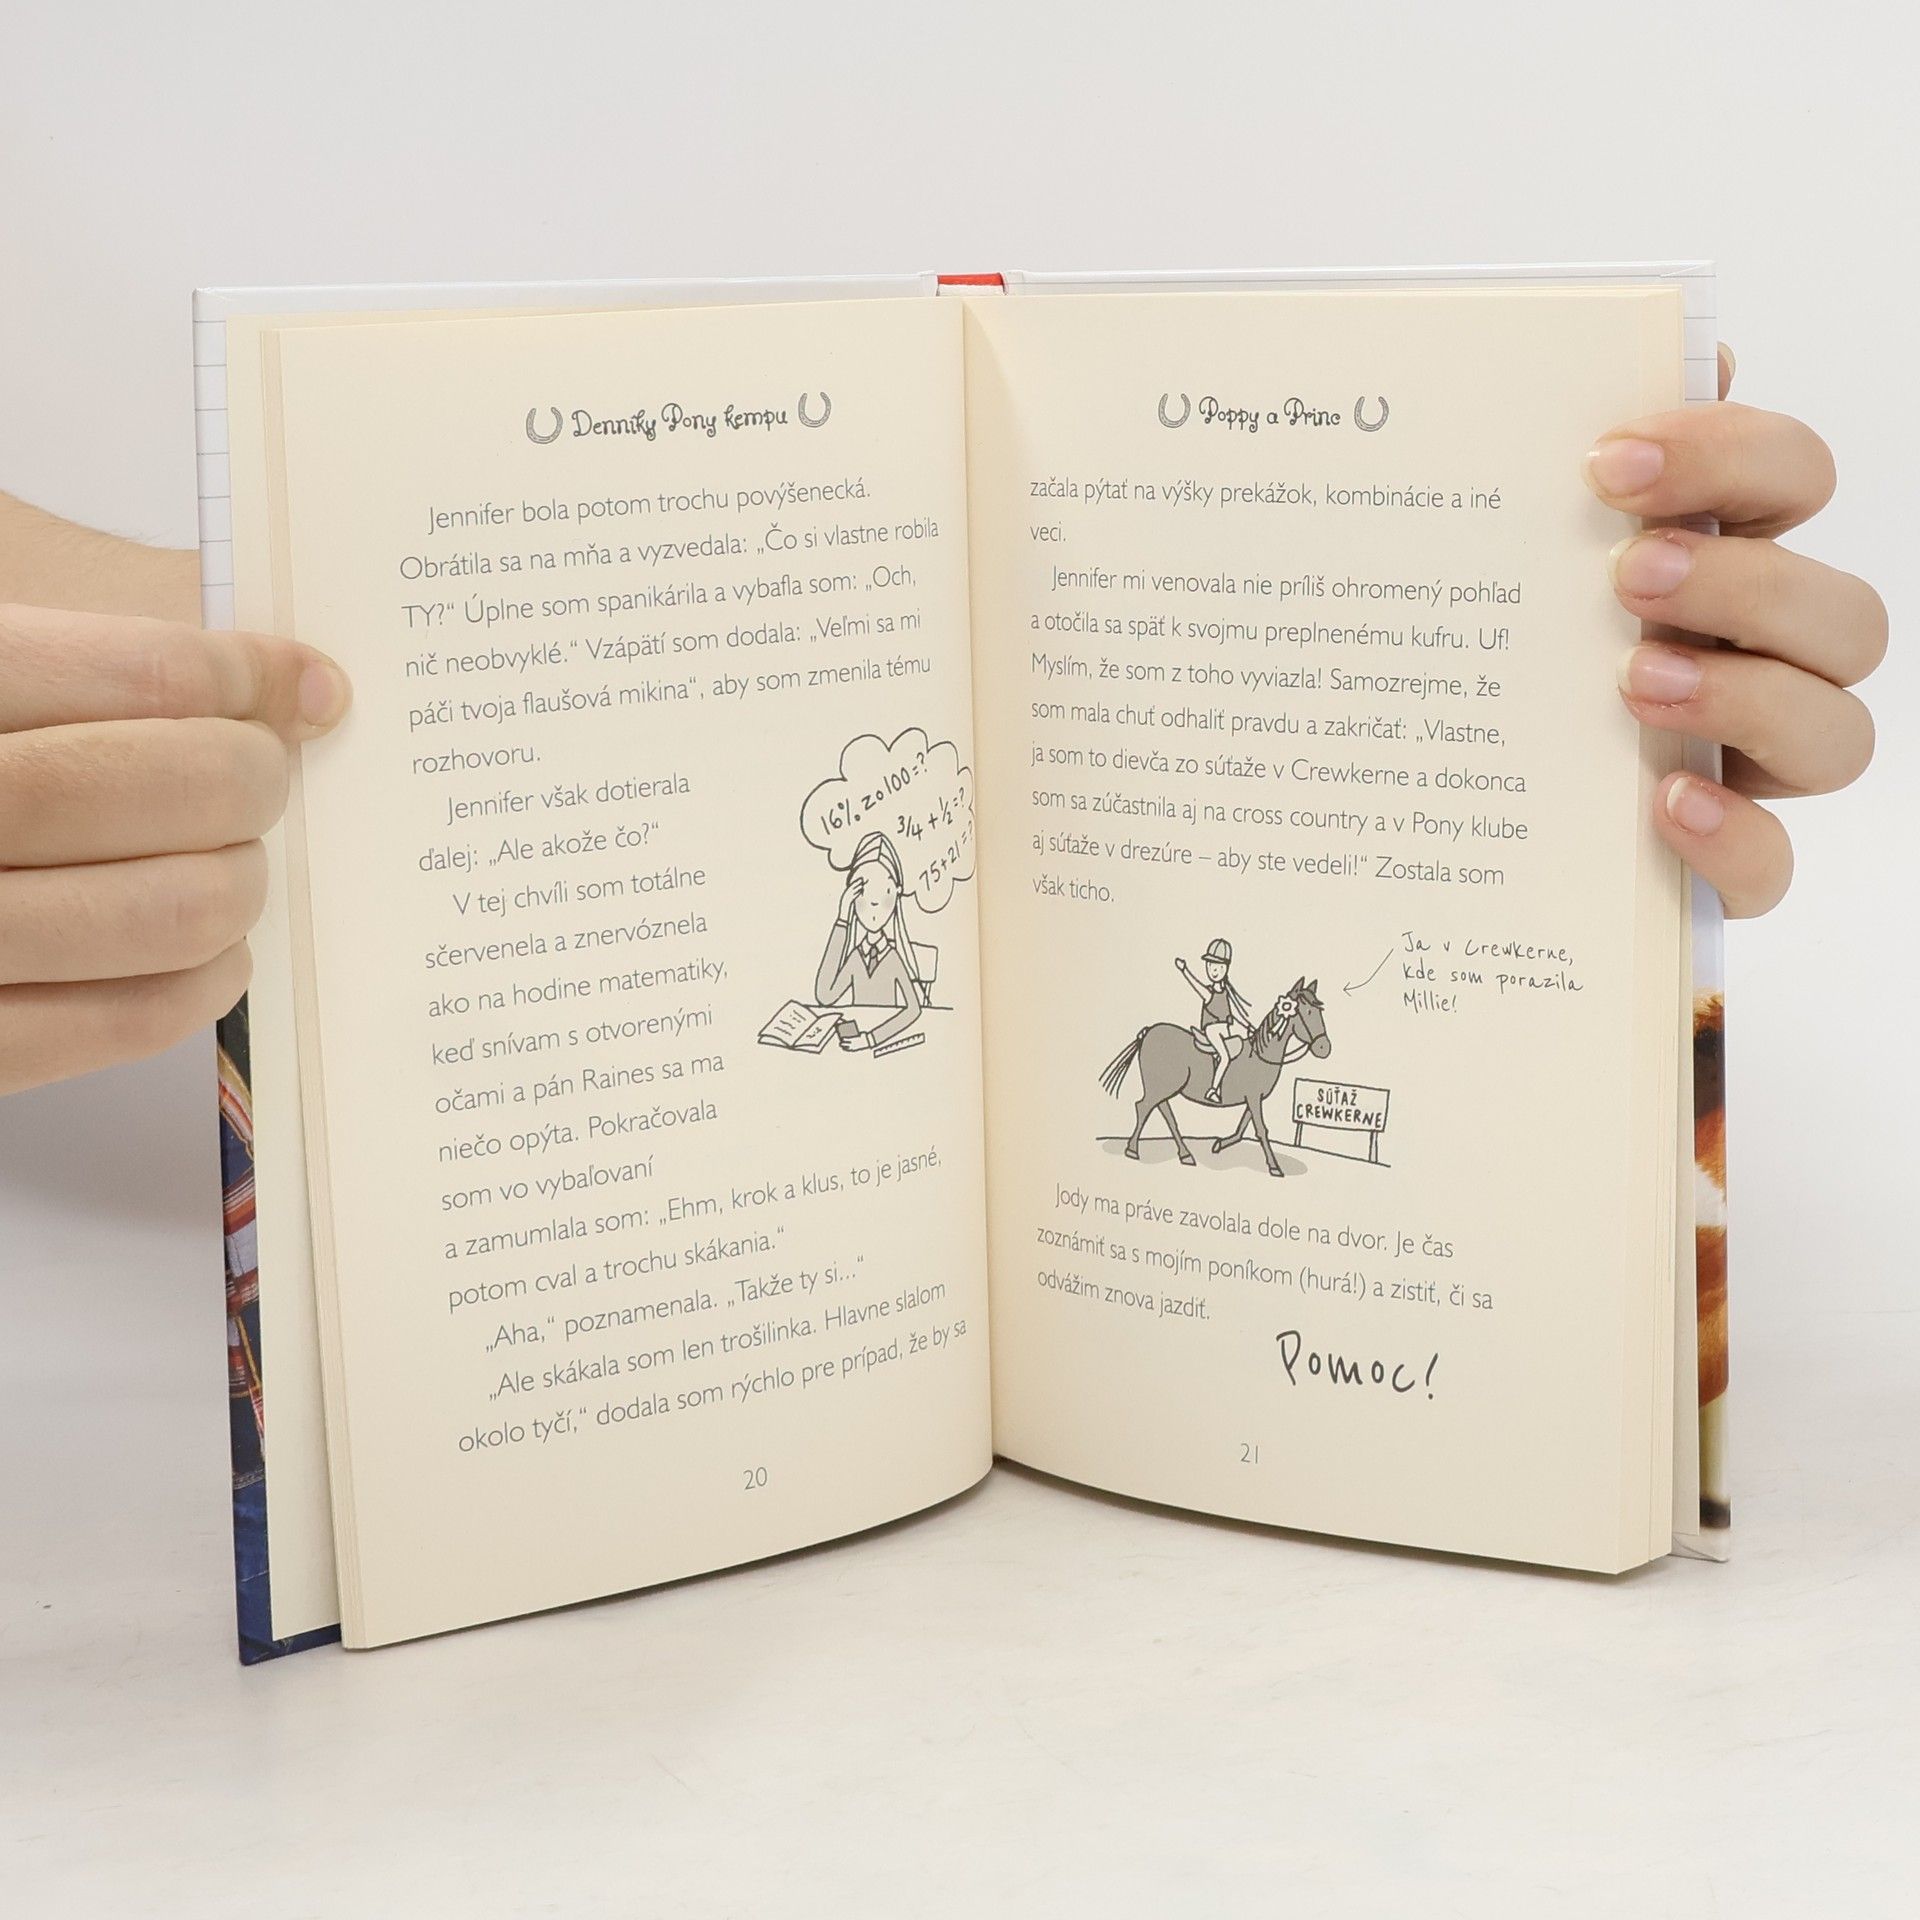 Denníky Pony kempu
Jennifer bola potom trochu povýšenecká.
Obrátila sa na mňa a vyzvedala: „Čo si vlastne robila
TY?“ Úplne som spanikárila a vybafla som: „Och,
nič neobvyklé.“ Vzápätí som dodala: „Veľmi sa mi
páči tvoja flaušová mikina“, aby som zmenila tému
rozhovoru.
Jennifer však dotierala
ďalej: „Ale akože čo?“
V tej chvíli som totálne
sčervenela a znervóznela
ako na hodine matematiky,
keď snívam s otvorenými
očami a pán Raines sa ma
niečo opýta. Pokračovala
som vo vybaľovaní
a zamumlala som: „Ehm, krok a klus, to je jasné,
potom cval a trochu skákania.“
„Aha,“ poznamenala. „Takže ty si...“
„Ale skákala som len trošilinka. Hlavne slalom
okolo tyčí,“ dodala som rýchlo pre prípad, že by sa
16% zo 100=?
3/4 + 1/2 =?
75+21=?
20
Poppy a Princ
začala pýtať na výšky prekážok, kombinácie a iné
veci.
Jennifer mi venovala nie príliš ohromený pohľad
a otočila sa späť k svojmu preplnenému kufru. Uf!
Myslím, že som z toho vyviazla! Samozrejme, že
som mala chuť odhaliť pravdu a zakričať: „Vlastne,
ja som to dievča zo súťaže v Crewkerne a dokonca
som sa zúčastnila aj na cross country a v Pony klube
aj súťaže v drezúre – aby ste vedeli!“ Zostala som
však ticho.
Ja v Crewkerne,
kde som porazila
Millie!
SÚŤAŽ
CREWKERNE
Jody ma práve zavolala dole na dvor. Je čas
zoznámiť sa s mojím poníkom (hurá!) a zistiť, či sa
odvážim znova jazdiť.
Pomoc!
21